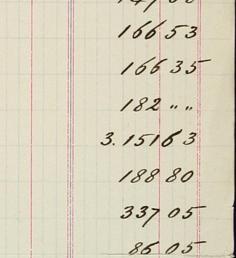 166 53
166 35
182 " "
3.151 63
188 80
337 05
86 05